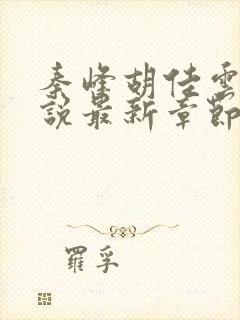 秦峰胡佳雲
說最新章節
羅孚